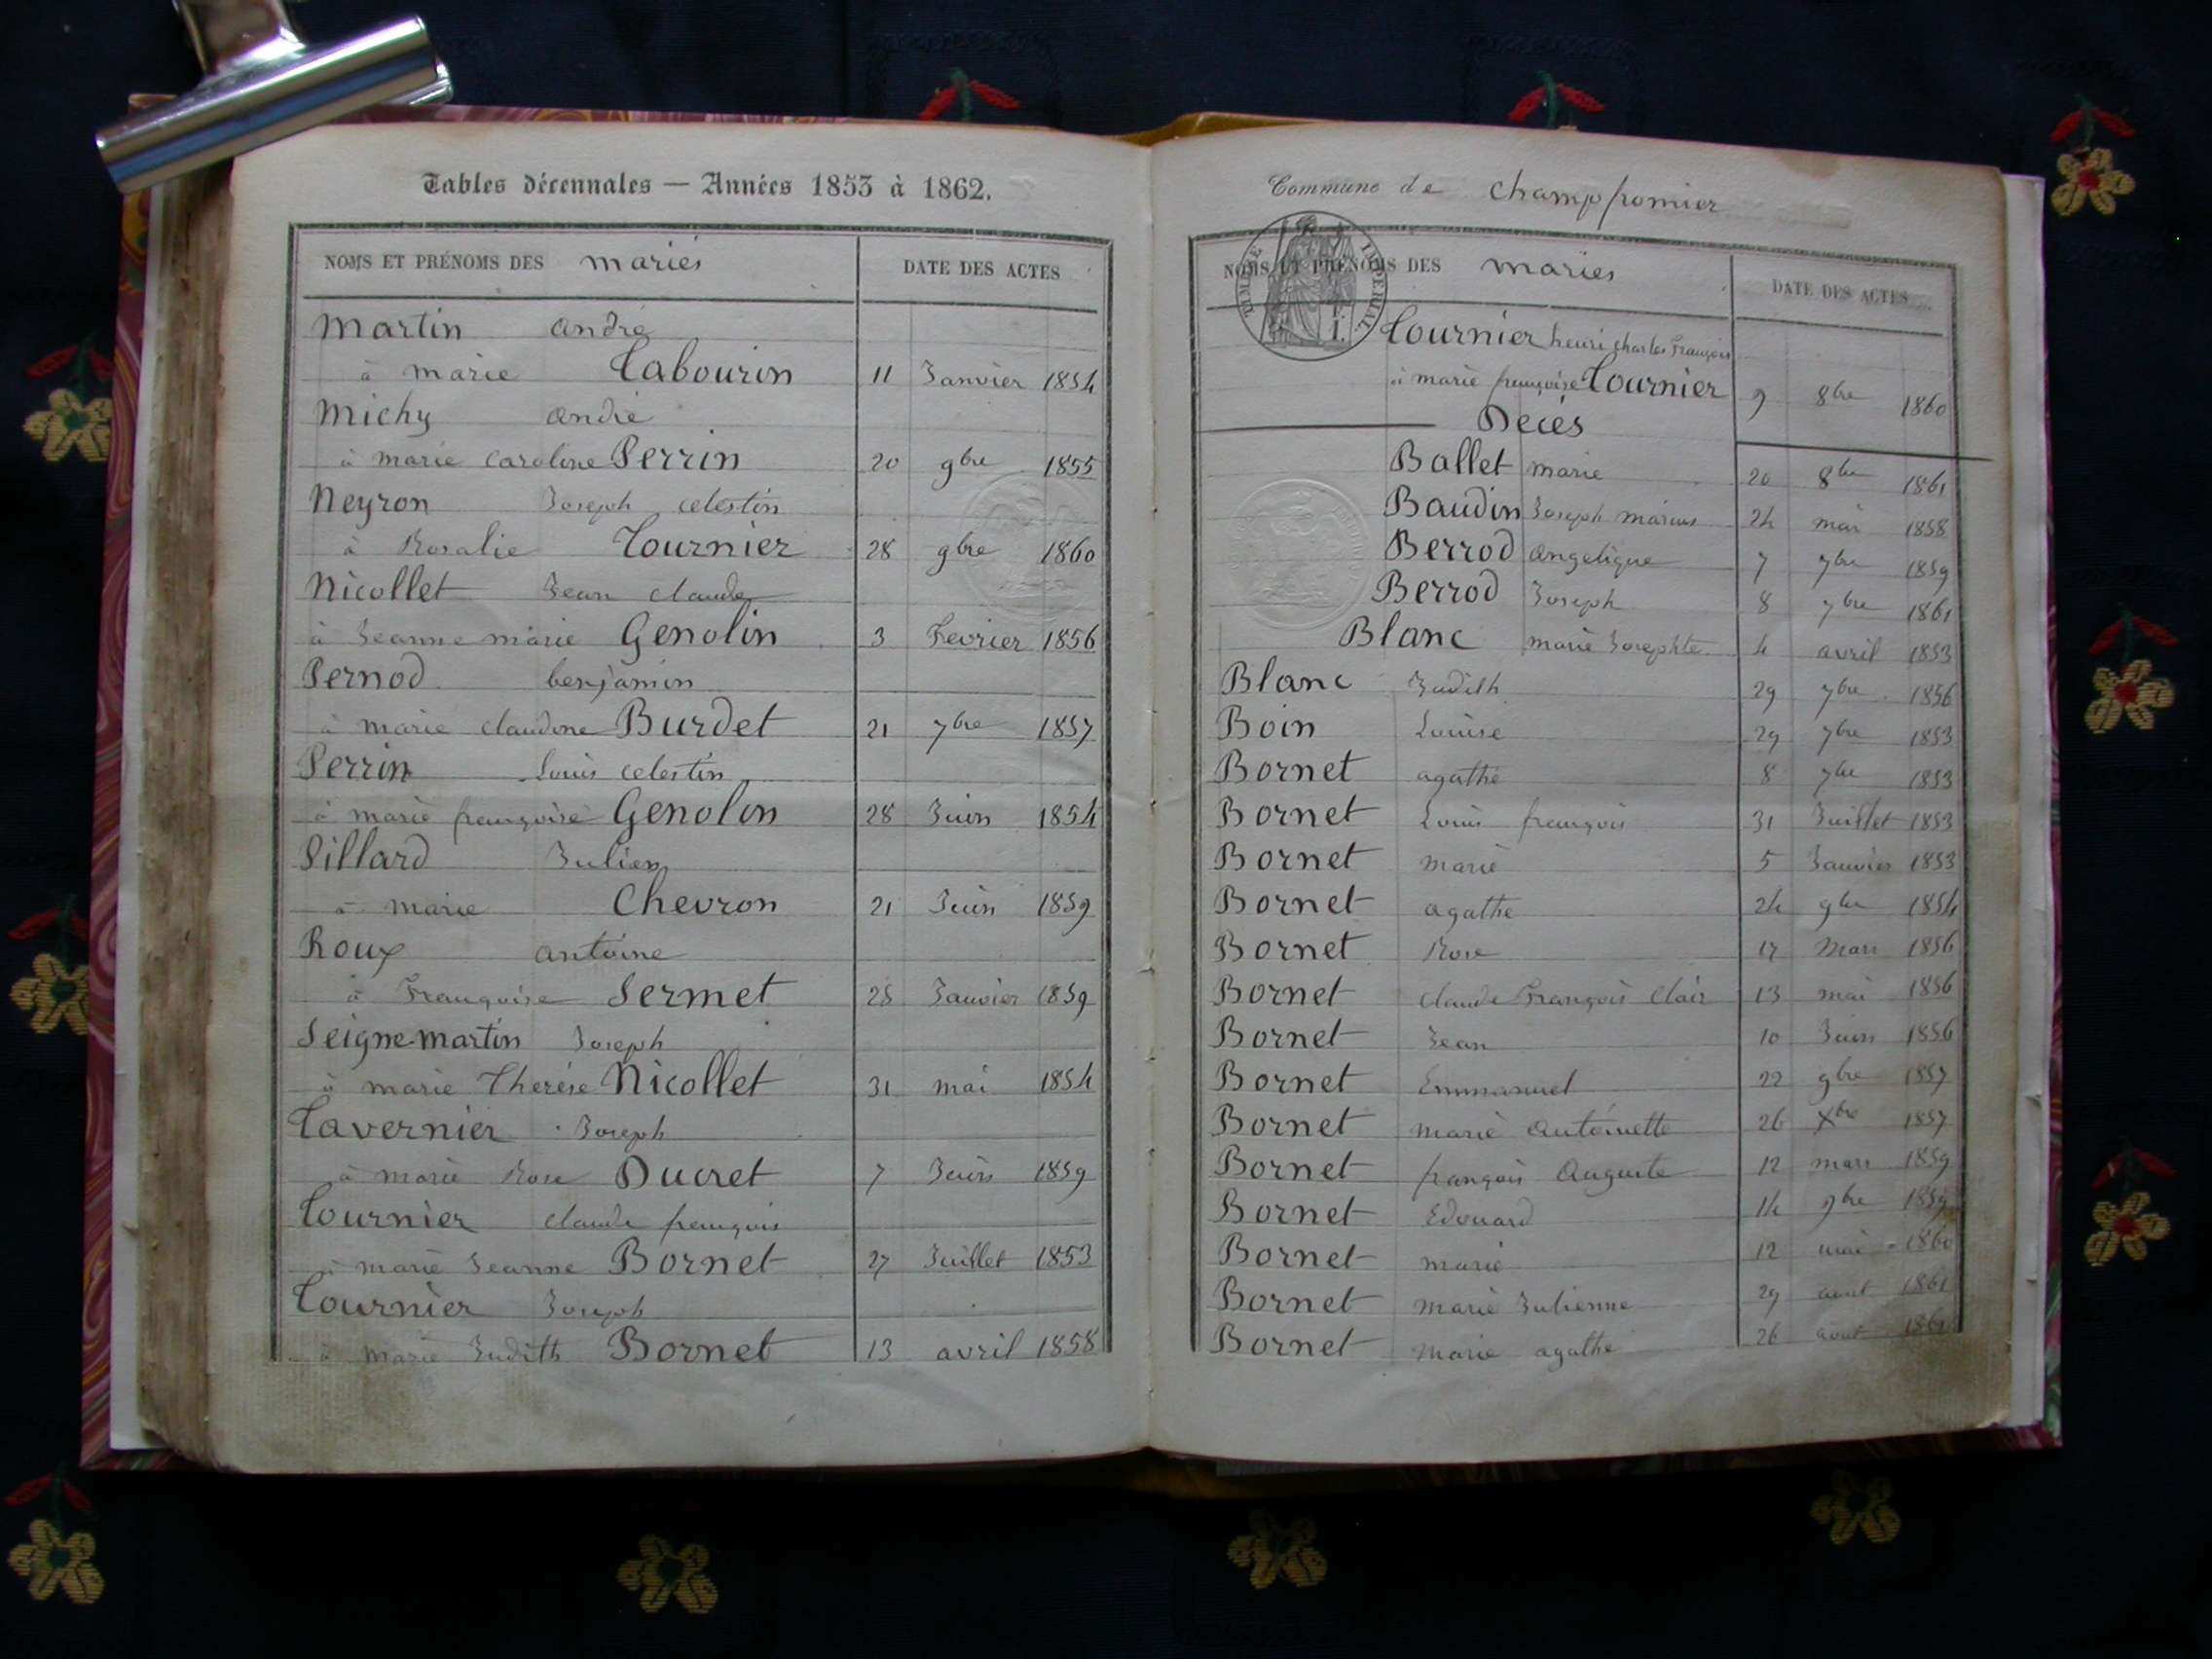 Tables décennales — Années 1853 à 1862.
NOMS ET PRÉNOMS DES mariés DATE DES ACTES
Martin andré
à marie Tabourin 11 Janvier 1854
Michy andré
à marie caroline Perrin 20 9bre 1855
Neyron Joseph celestin
à Rosalie Tournier 28 9bre 1860
Nicollet Jean claude
à Jeanne marie Genolin 3 Fevrier 1856
Pernod benjamin
à marie claudine Burdet 21 7bre 1857
Perrin Louis celestin
à marie françoise Genolin 28 Juin 1854
Pillard Julien
à marie Chevron 21 Juin 1859
Roux antoine
à Françoise Sermet 25 Janvier 1859
Seigne-martin Joseph
à marie Therése Nicollet 31 mai 1854
Tavernier Joseph
à marie Rose Ducret 7 Juin 1859
Tournier claude françois
à marie Jeanne Bornet 27 Juillet 1853
Tournier Joseph
à marie Judith Bornet 13 avril 1858
Commune de Champfromier
TIMBRE IMPERIAL
NOMS ET PRÉNOMS DES mariés DATE DES ACTES
Tournier henri charles François
à marie françoise Tournier 9 8bre 1860
Décés
Ballet marie 20 8bre 1861
Baudin Joseph marius 24 mai 1858
Berrod angelique 7 7bre 1859
Berrod Joseph 8 7bre 1861
Blanc marie Josephte 4 avril 1853
Blanc Judith 29 7bre 1856
Boin Louise 29 7bre 1853
Bornet agathe 8 7bre 1853
Bornet Louis françois 31 Juillet 1853
Bornet marie 5 Janvier 1853
Bornet agathe 24 9bre 1854
Bornet Rose 17 Mars 1856
Bornet claude François clair 13 mai 1856
Bornet Jean 10 Juin 1856
Bornet Emmanuel 22 9bre 1857
Bornet marie antoinette 26 Xbre 1857
Bornet françois Auguste 12 mars 1859
Bornet Edouard 14 9bre 1859
Bornet marie 12 mai 1860
Bornet marie Julienne 29 aout 1861
Bornet marie agathe 26 août 1861